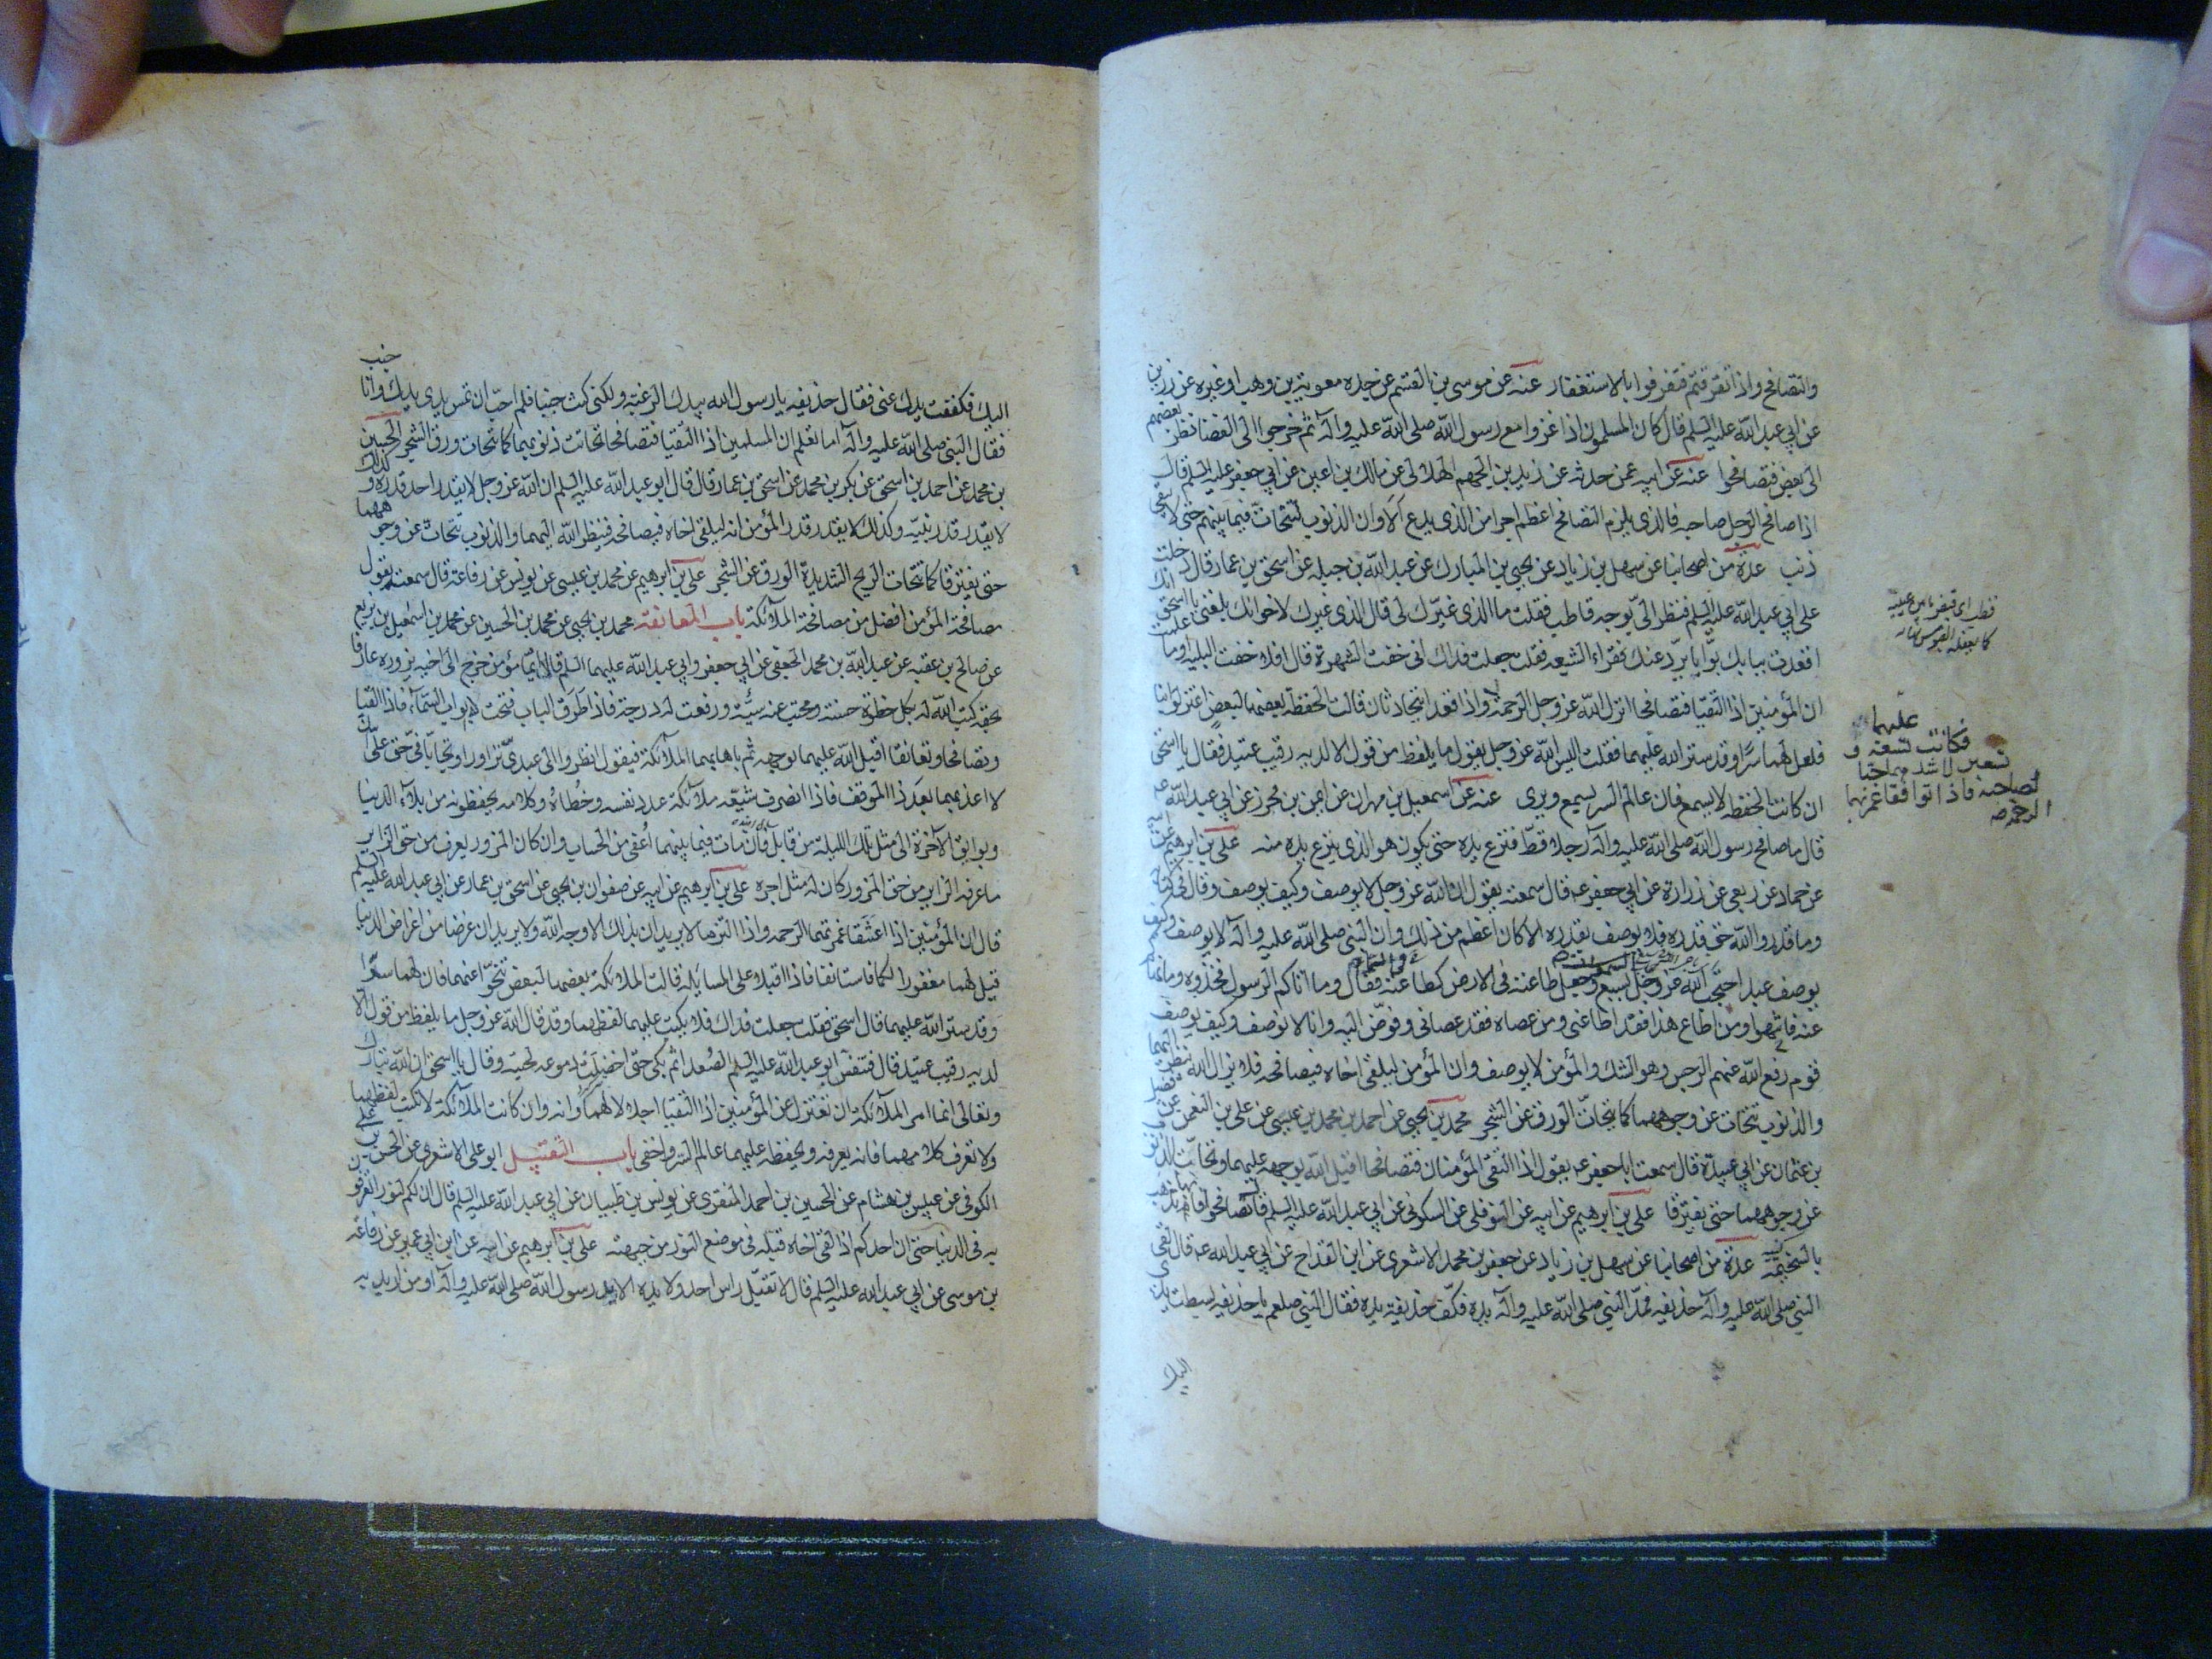 والتصافح واذا تفرقتم فتفرقوا بالاستغفار عنه عن موسى بن القسم عن جده معوية بن وهب او غيره عن رزين
عن ابي عبد الله عليه السلم قال كان المسلمون اذا غزوا مع رسول الله صلى الله عليه وآله ثم خرجوا الى الفضا نظر بعضهم
الى بعض فتصافحوا عنه عن ابيه عمن حدثه عن زيد بن الجهم الهلالى عن مالك بن اعين عن ابي جعفر عليه السلم قال
اذا صافح الرجل صاحبه فالذى يلزم التصافح اعظم اجرا من الذى يدع الا وان الذنوب لتتحات فيما بينهم حتى لا يبقى
ذنب عدة من اصحابنا عن سهل بن زياد عن يحيى بن المبارك عن عبد الله بن جبله عن اسحق بن عمار قال دخلت
على ابي عبد الله عليه السلم فنظر الىّ بوجه قاطب فقلت ما الذى غيّرك لى قال الذى غيرك لاخوانك بلغنى يا اسحق انك
اقعدت ببابك بوّابا يردّ عنك فقراء الشيعه فقلت جعلت فداك انى خفت الشهرة قال افلا خفت البليه اوما علمت
ان المؤمنين اذا التقيا فتصافحا انزل الله عز وجل الرحمة واذا قعدا يتحادثان قالت الحفظة بعضها لبعض اعتزلوا بنا
فلعل لهما سرّا وقد ستر الله عليهما فقلت اليس الله عز وجل يقول ما يلفظ من قول الا لديه رقيب عتيد فقال يا اسحق
ان كانت الحفظه لا يسمع فان عالم السر يسمع ويرى عنه عن اسمعيل بن مهران عن ايمن بن محرز عن ابي عبد الله عه
قال ما صافح رسول الله صلى الله عليه وآله رجلا قطّ فنزع يده حتى يكون هو الذى ينزع يده منه على بن ابرهيم عن ابيه
عن حماد عن ربعى عن زرارة عن ابي جعفر عه قال سمعته يقول ان الله عز وجل لا يوصف وكيف يوصف وقال فى كتابه
وما قدروا الله حق قدره فلا يوصف بقدره الا كان اعظم من ذلك وان النبى صلى الله عليه وآله لا يوصف وكيف
يوصف عبد احتجب الله عز وجل بسبع وجعل طاعته فى الارض كطاعته فقال وما اتاكم الرسول فخذوه وما نهاكم
عنه فانتهوا ومن اطاع هذا فقد اطاعنى ومن عصاه فقد عصانى وفوض اليه وانا لا نوصف وكيف يوصف
قوم رفع الله عنهم الرجس وهو الشك والمؤمن لا يوصف وان المؤمن ليلقى اخاه فيصافحه فلا يزال الله ينظر اليهما
والذنوب تتحات عن وجوههما كما يتحاتّ الورق عن الشجر محمد بن يحيى عن احمد بن محمد بن عيسى عن على بن النعمن عن فضيل
بن عثمان عن ابي عبيدة قال سمعت ابا جعفر عه يقول اذا التقى المؤمنان فتصافحا اقبل الله بوجهه عليهما وتحاتت الذنوب
عن وجوههما حتى يفترقا على بن ابرهيم عن ابيه عن النوفلى عن السكونى عن ابي عبد الله عليه السلم قال تصافحوا فانها تذهب
بالسخيمه عدة من اصحابنا عن سهل بن زياد عن جعفر بن محمد الاشعرى عن ابن القداح عن ابي عبد الله عه قال لقى
النبي صلى الله عليه وآله حذيفه فمدّ النبي صلى الله عليه وآله يده فكفّ حذيفة يده فقال النبي صلعم يا حذيفه بسطت يدى
اليك
كما يفعله العبوس
عليهما
فكانت تسعة و
تسعين لاشدهما حبا
لصاحبه فاذا توافقا غمرتهما
الرحمة صه
اليك فكففت يدك عنى فقال حذيفه يا رسول الله بيدك الرغبة ولكنى كنت جنبا فلم احبّ ان تمس يدى يدك وانا جنب
فقال النبى صلى الله عليه وآله اما تعلم ان المسلمين اذا التقيا فتصافحا تحاتت ذنوبهما كما تتحات ورق الشجر الحسين
بن محمد عن احمد بن اسحق عن بكر بن محمد عن اسحق بن عمار قال قال ابو عبد الله عليه السلم ان الله عز وجل لا يقدر احد قدره وكذلك
لا يقدر قدر نبيّه وكذلك لا يقدر قدر المؤمن انه ليلقى اخاه فيصافحه فينظر الله اليهما والذنوب تتحات عن وجوههما
حتى يفترقا كما تتحات الريح الشديدة الورق عن الشجر على بن ابرهيم عن محمد بن عيسى عن يونس عن رفاعة قال سمعته يقول
مصافحة المؤمن افضل من مصافحة الملآئكة باب المعانقة محمد بن يحيى عن محمد بن الحسين عن محمد بن اسمعيل بن بزيع
عن صالح بن عقبه عن عبد الله بن محمد الجعفى عن ابي جعفر وابي عبد الله عليهما السلم قالا ايّما مؤمن خرج الى اخيه يزوره عارفا
بحقه كتب الله له بكل خطوة حسنة ومحيت عنه سيّئة ورفعت له درجة فاذا طرق الباب فتحت له ابواب السّمآء فاذا التقيا
وتصافحا وتعانقا اقبل الله عليهما بوجهه ثم باهى بهما الملآئكة فيقول انظروا الى عبدىّ تزاورا وتحابّا فىّ حق علىّ ان
لا اعذبهما بعد ذا الموقف فاذا انصرف شيّعه ملآئكة عدد نفسه وخُطاه وكلامه يحفظونه من بلآء الدنيا
وبوايق الآخرة الى مثل تلك الليلة من قابل فان مات فيما بينهما اُعفى من الحساب وان كان المزور يعرف من حق الزاير
ما عرفه الزاير من حق المزور كان له مثل اجره على بن ابرهيم عن ابيه عن صفوان بن يحيى عن اسحق بن عمار عن ابي عبد الله عليه السلم
قال ان المؤمنين اذا اعتنقا غمرتهما الرحمه واذا التزما لا يريدان بذلك الا وجه الله ولا يريدان غرضا من اغراض الدنيا
قيل لهما مغفورا لكما فاستانفا فاذا اقبلا على المسايلة قالت الملائكة بعضها لبعض تنحّوا عنهما فان لهما سرّا
وقد ستر الله عليهما قال اسحق فقلت جعلت فداك فلا يكتب عليهما لفظهما وقد قال الله عز وجل ما يلفظ من قول الا
لديه رقيب عتيد قال فتنفس ابو عبد الله عليه السلم الصُعدا ثم بكى حتى اخضلت دموعه لحيته وقال يا اسحق ان الله تبارك
وتعالى انما امر الملآئكة ان تعتزل عن المؤمنين اذا التقيا اجلالا لهما وانه وان كانت الملآئكة لا تكتب لفظهما
ولا تعرف كلامهما فانه يعرفه ويحفظه عليهما عالم السرّ واخفى باب التقبيل ابو على الاشعرى عن الحسن بن على
الكوفى عن عبيس بن هشام عن الحسين بن احمد المنقرى عن يونس بن ظبيان عن ابي عبد الله عليه السلم قال ان لكم لنورا تعرفون
به فى الدنيا حتى ان احدكم اذا لقى اخاه قبله فى موضع النور من جبهته على بن ابرهيم عن ابيه عن ابن ابي عمير عن رفاعه
بن موسى عن ابي عبد الله عليه السلم قال لا تقبّل راس احد ولا يده الا يد رسول الله صلى الله عليه وآله او من اريد به